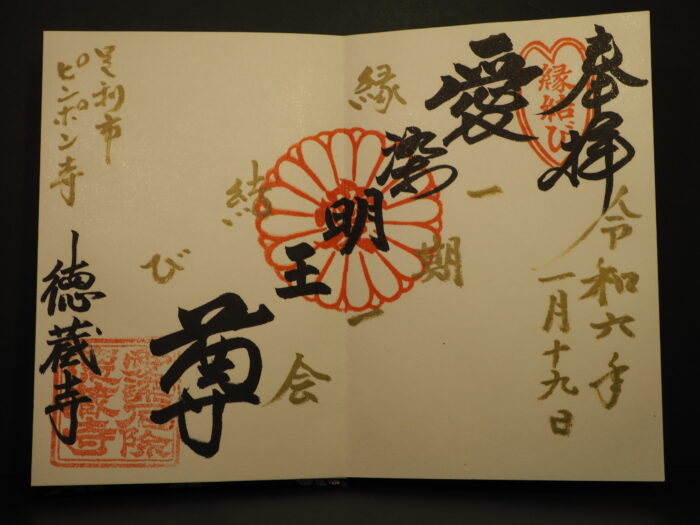 奉拝
縁結び
令和六年
一月十九日
愛染明王尊
一期一会
縁結び
足利市
ピンポン寺
徳蔵寺